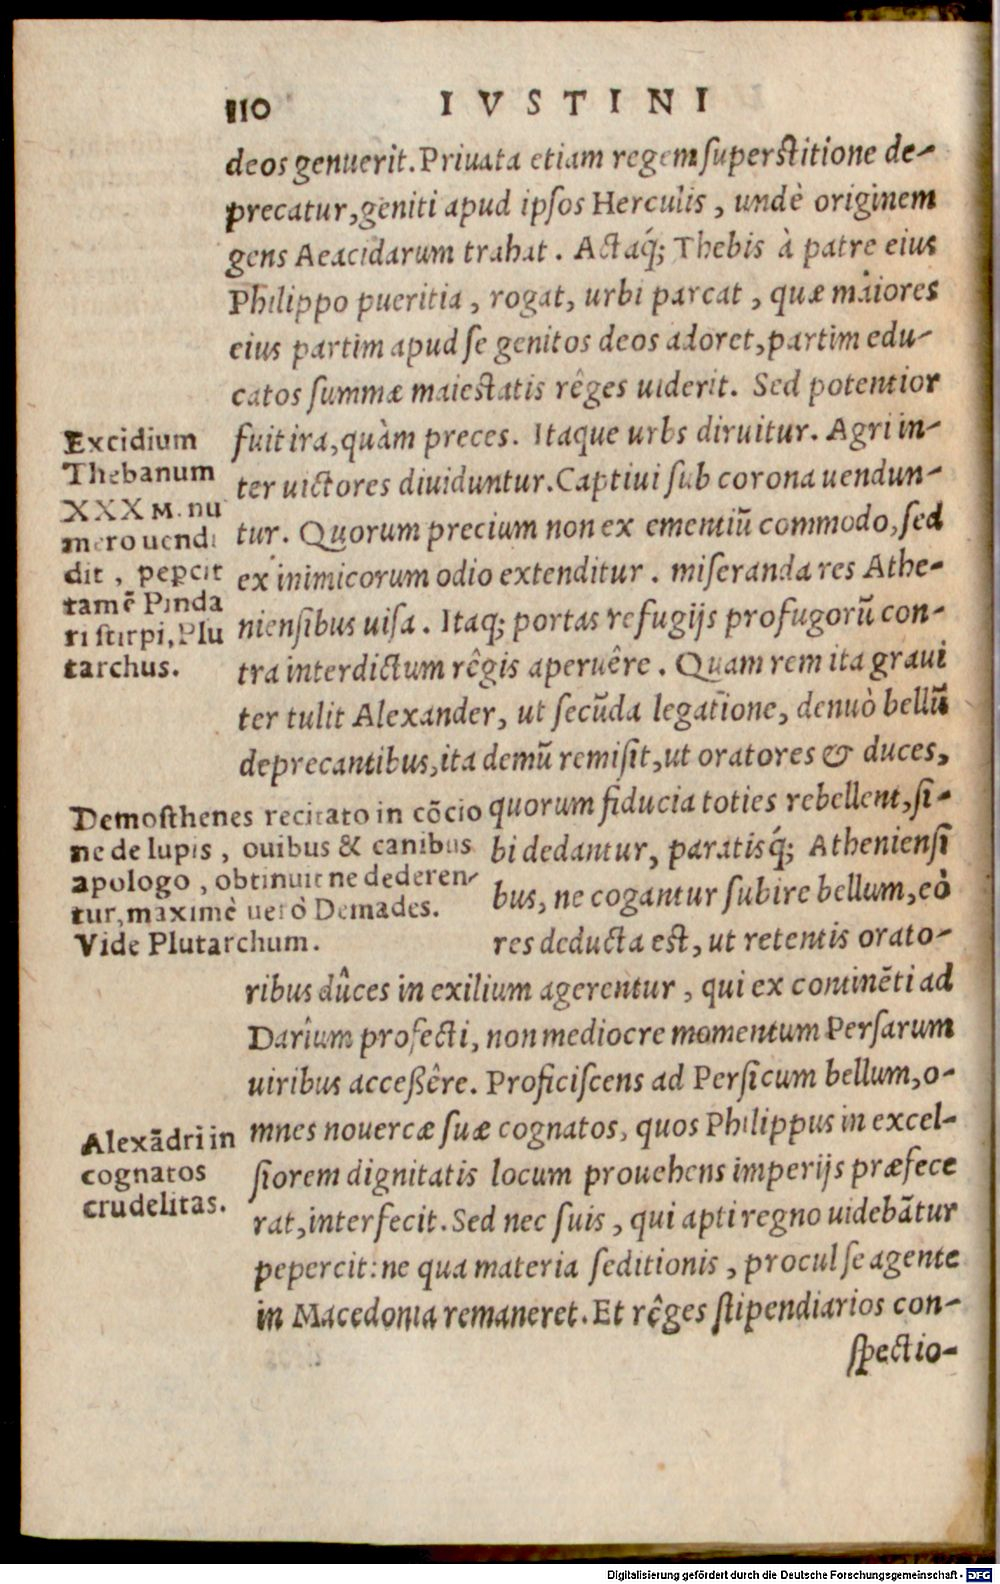 110 IVSTINI
deos genuerit. Priuata etiam regem superstitione de-
precatur, geniti apud ipsos Herculis, undè originem
gens Aeacidarum trahat. Actaq́; Thebis à patre eius
Philippo pueritia, rogat, urbi parcat, quæ maiores
eius partim apud se genitos deos adoret, partim edu-
catos summæ maiestatis rêges uiderit. Sed potentior
fuit ira, quàm preces. Itaque urbs diruitur. Agri in-
ter uictores diuiduntur. Captiui sub corona uendun-
tur. Quorum precium non ex ementiū commodo, sed
ex inimicorum odio extenditur. miseranda res Athe-
niensibus uisa. Itaq; portas refugijs profugorū con-
tra interdictum rêgis aperuêre. Quam rem ita graui
ter tulit Alexander, ut secūda legatione, denuò bellū
deprecantibus, ita demū remisit, ut oratores & duces,
quorum fiducia toties rebellent, si-
bi dedantur, paratisq́; Atheniensi
bus, ne cogantur subire bellum, eò
res deducta est, ut retentis orato-
ribus dûces in exilium agerentur, qui ex continēti ad
Darîum profecti, non mediocre momentum Persarum
uiribus acceßêre. Proficiscens ad Persicum bellum, o-
mnes nouercæ suæ cognatos, quos Philippus in excel-
siorem dignitatis locum prouehens imperijs præfece
rat, interfecit. Sed nec suis, qui apti regno uidebātur
pepercit: ne qua materia seditionis, procul se agente
in Macedonia remaneret. Et rêges stipendiarios con-
spectio-
Excidium
Thebanum
XXXM. nu
mero uendi
dit, pepcit
tamē Pinda
ri stirpi, Plu
tarchus.
Demosthenes recitato in cōcio
ne de lupis, ouibus & canibus
apologo, obtinuit ne dederen-
tur, maximè uerò Demades.
Vide Plutarchum.
Alexādri in
cognatos
crudelitas.
Digitalisierung gefördert durch die Deutsche Forschungsgemeinschaft - DFG